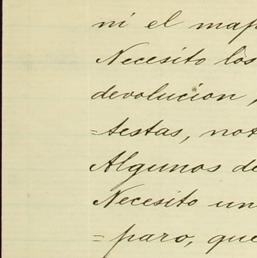 ni el map
Necesito los
devolucion,
=testas, not
Algunos de
Necesito un
=paro, que